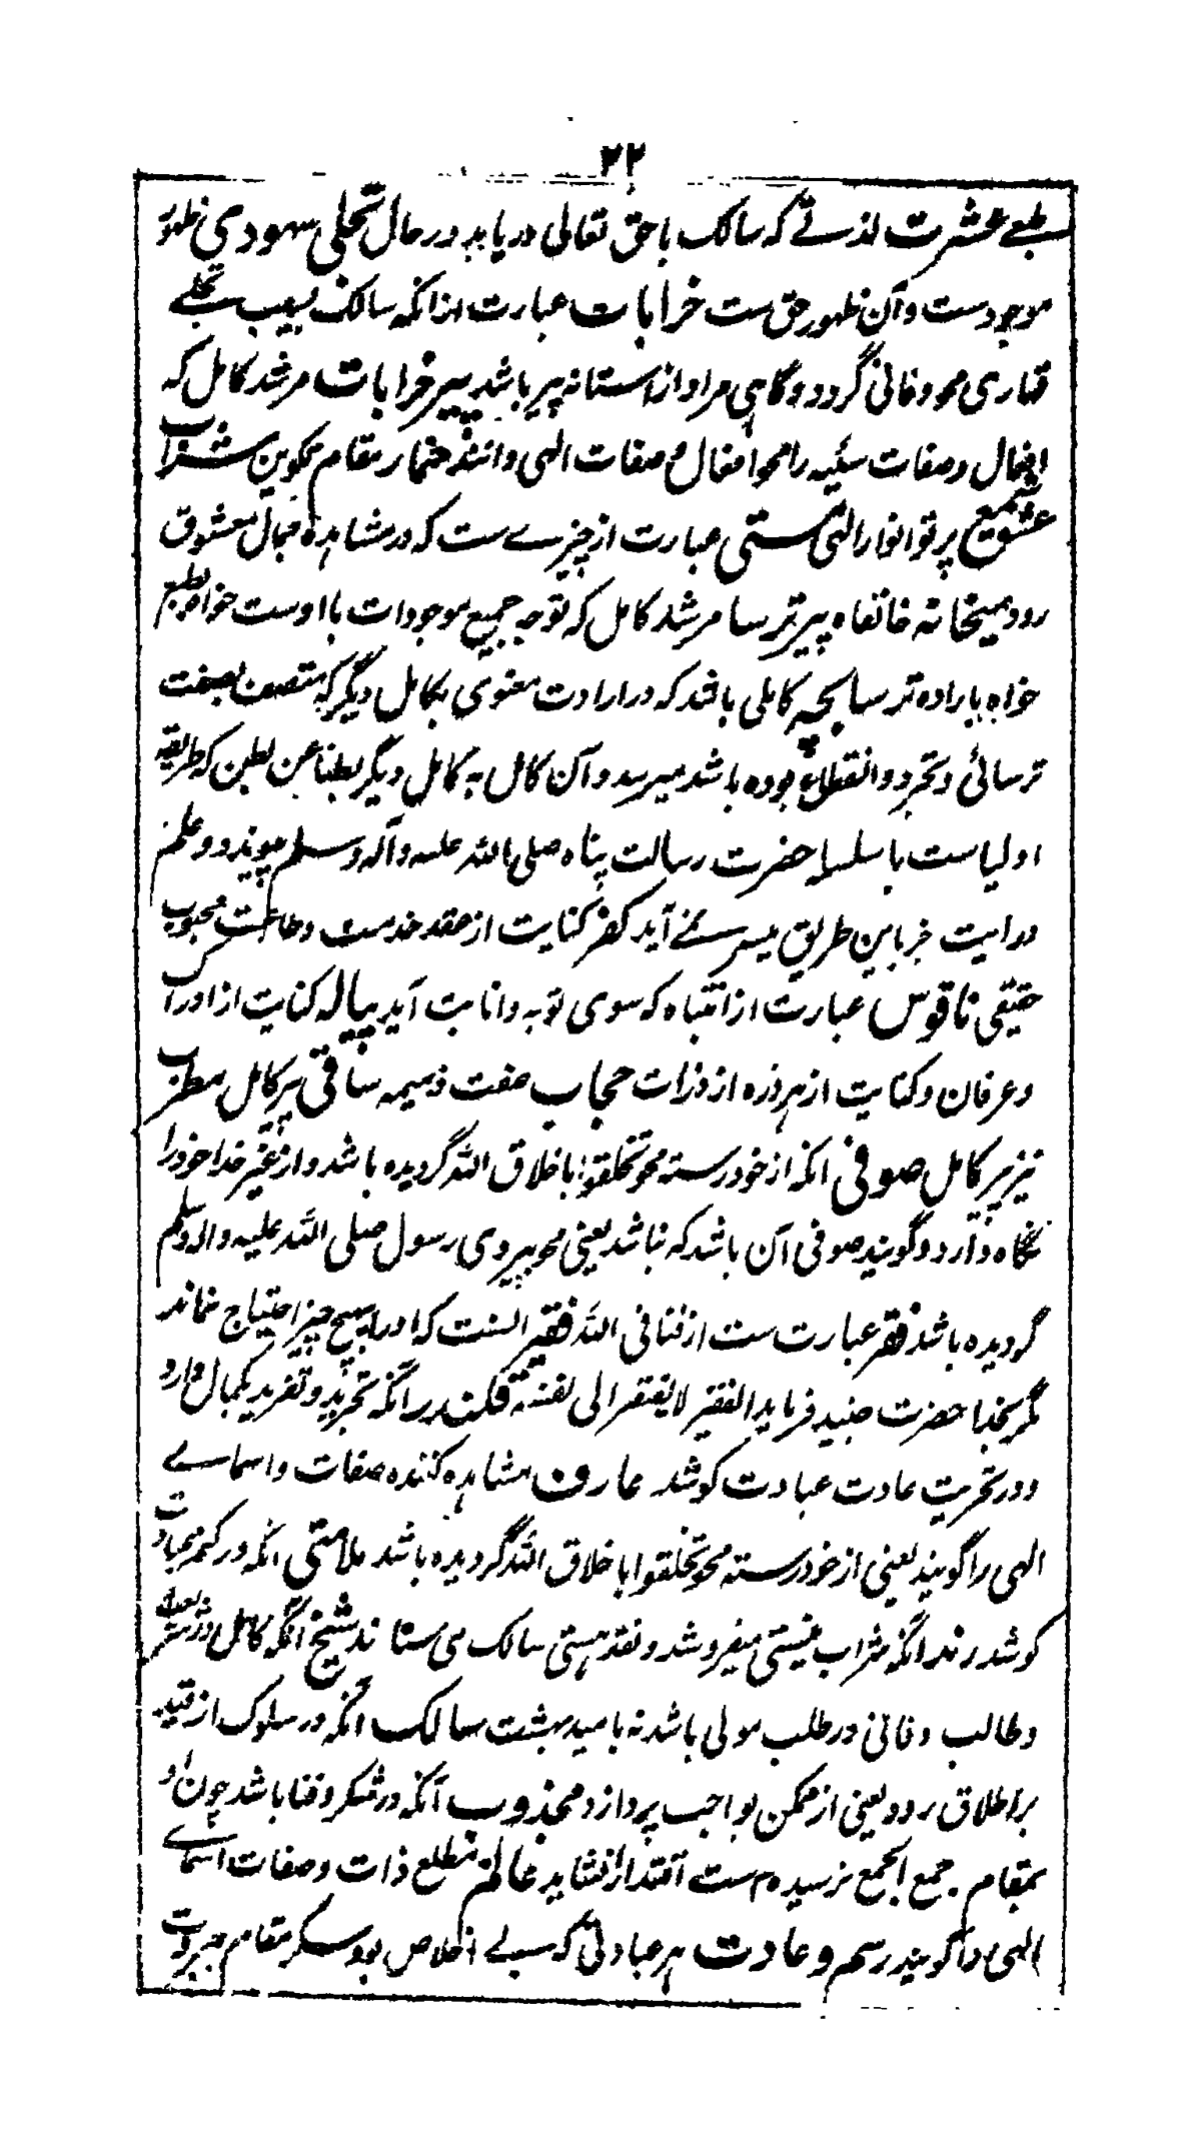 ۲۲
طبعے عشرت لذتے که سالک با حق تعالی دریابد در حال تجلی شهودی ظهور
موجودست و آن ظهور حق ست خرابات عبارت از انکه سالک بسبب تجلے
قهاری محو و فانی گردد و گاهی مراد از استانه پیر باشد پیر خرابات مرشد کامل که
افعال و صفات سئیه را محو افعال و صفات الهی دانند خمار مقام تکوین شراب
عشق شمع پرتو انوار الهی مستی عبارت از چیزے ست که در مشاهده جمال معشوق
رود میخانه خانقاه پیر ترسا مرشد کامل که توجه جمیع موجودات با اوست خواه بطبع
خواه باراده ترسا بچه کاملی باشد که در ارادت معنوی بکامل دیگر که متصف بصفت
ترسائی و تجرد و انقطاع بوده باشد میرسد و آن کامل به کامل دیگر بطنا عن بطن که طریقه
اولیاست با سلسله حضرت رسالت پناه صلی الله علیه وآله وسلم پیوندد و علم
درایت جز باین طریق میسر نمے آید کفر کنایت از عقد خدمت و طاعت محبوب
حقیقی ناقوس عبارت از انتباه که سوی توبه و انابت آید پیاله کنایت از ادراک
و عرفان و کنایت از هر ذره از ذرات حجاب صفت ذمیمه ساقی پیر کامل مطرب
نیز پیر کامل صوفی انکه از خود رسته محو تخلقوا باخلاق الله گردیده باشد و از غیر خدا خود را
نگاه دارد و گویند صوفی آن باشد که نباشد یعنی محو پیروی رسول صلی الله علیه واله وسلم
گردیده باشد فقر عبارت ست از فنا فی الله فقیر انست که او را بهیچ چیز احتیاج نماند
مگر بخدا حضرت جنید فرماید الفقیر لا یفتقر الی نفسه قلندر انکه تجرید و تفرید بکمال دارد
و در تخریب عادت عبادت کوشد عارف مشاهده کننده صفات و اسماے
الهی را گویند یعنی از خود رسته محو تخلقوا باخلاق الله گردیده باشد ملامتی انکه در کتم عبادت
کوشد رند انکه شراب نیستی میفروشد و نقد هستی سالک می ستاند شیخ انکه کامل در شریعت
و طالب و فانی در طلب مولی باشد نه بامید بهشت سالک انکه در سلوک از قید
باطلاق رود یعنی از ممکن بواجب پردازد مجذوب آنکه در سکر و فنا باشد چون او
بمقام جمع الجمع نرسیده است اقتدا را نشاید عالم مطلع ذات و صفات اسماے
الهی را گویند رسم و عادت هر عبادتی که بے اخلاص بود سکر مقام جبروت